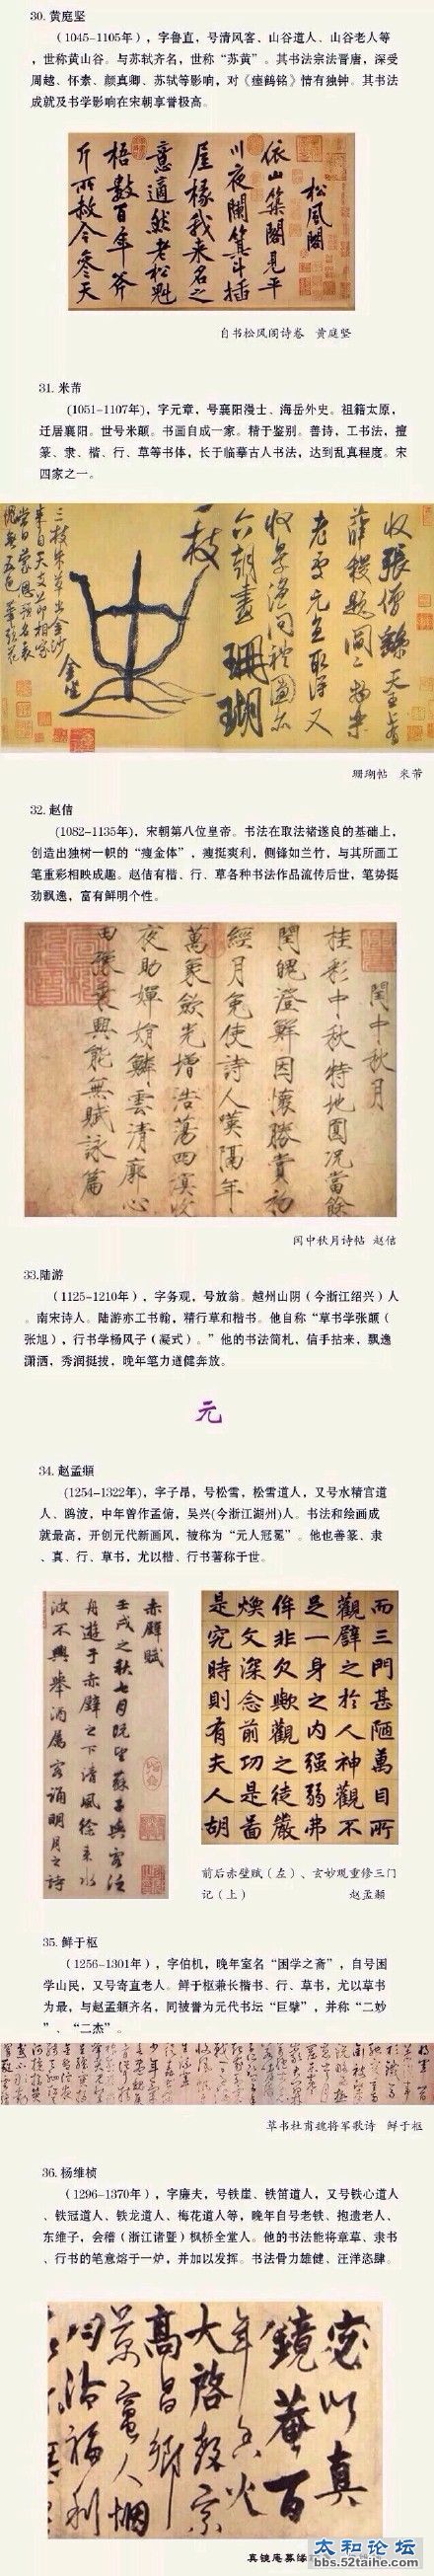 30. 黄庭坚
(1045-1105年)，字鲁直，号清风客、山谷道人、山谷老人等
，世称黄山谷。与苏轼齐名，世称“苏黄”。其书法宗法晋唐，深受
周越、怀素、颜真卿、苏轼等影响，对《瘗鹤铭》情有独钟。其书法
成就及书学影响在宋朝享誉极高。
松风阁
依山築閣見平
川夜闌箕斗插
屋椽我来名之
意適然老松魁
梧數百年斧
斤所赦今参天
自书松风阁诗卷 黄庭坚
31. 米芾
(1051-1107年)，字元章，号襄阳漫士、海岳外史。祖籍太原，
迁居襄阳。世号米颠。书画自成一家。精于鉴别。善诗，工书法，擅
篆、隶、楷、行、草等书体，长于临摹古人书法，达到乱真程度。宋
四家之一。
收張僧繇天王
薛稷題閻二物樂
老處元直取得又
收景温問禮圖亦
六朝畫珊瑚
一枝
金坐
三枝朱草出金沙
来自天支节相家
當日蒙恩預名表
愧無五色筆頭花
珊瑚帖 米芾
32. 赵佶
(1082-1135年)，宋朝第八位皇帝。书法在取法褚遂良的基础上，
创造出独树一帜的“瘦金体”，瘦挺爽利，侧锋如兰竹，与其所画工
笔重彩相映成趣。赵佶有楷、行、草各种书法作品流传后世，笔势挺
劲飘逸，富有鲜明个性。
閏中秋月
桂彩中秋特地圓况當餘
閏魄澄鮮因懷勝賞初
經月免使詩人嘆隔年
萬象歛光增浩蕩四溟收
夜助嬋娟鱗雲清廓心
田豫乗興能無賦詠篇
闰中秋月诗帖 赵佶
33.陆游
(1125-1210年)，字务观，号放翁。越州山阴（今浙江绍兴）人
。南宋诗人。陆游亦工书翰，精行草和楷书。他自称“草书学张颠（
张旭），行书学杨风子（凝式）。”他的书法简札，信手拈来，飘逸
潇洒，秀润挺拔，晚年笔力遒健奔放。
元
34. 赵孟頫
(1254-1322年)，字子昂，号松雪，松雪道人，又号水精宫道
人、鸥波，中年曾作孟俯，吴兴(今浙江湖州)人。书法和绘画成
就最高，开创元代新画风，被称为“元人冠冕”。他也善篆、隶
、真、行、草书，尤以楷、行书著称于世。
赤壁賦
壬戌之秋七月既望蘇子與客泛
舟遊于赤壁之下清風徐来水
波不興舉酒属客誦明月之詩
而三門甚陋萬目所
觀壁之於人神觀不
足一身之内强弱弗
侔非欠歟觀之徒嚴
煥文深念前功是啚
是究時則有夫人胡
前后赤壁赋（左）、玄妙观重修三门
记（上） 赵孟頫
35. 鲜于枢
(1256-1301年)，字伯机，晚年室名“困学之斋”，自号困
学山民，又号寄直老人。鲜于枢兼长楷书、行、草书，尤以草书
为最，与赵孟頫齐名，同被誉为元代书坛“巨擘”，并称“二妙
”、“二杰”。
草书杜甫魏将军歌诗 鲜于枢
36. 杨维桢
(1296-1370年)，字廉夫，号铁崖、铁笛道人，又号铁心道人
、铁冠道人、铁龙道人、梅花道人等，晚年自号老铁、抱遗老人、
东维子，会稽（浙江诸暨）枫桥全堂人。他的书法能将章草、隶书
、行书的笔意熔于一炉，并加以发挥。书法骨力雄健、汪洋恣肆。
宓以真
鏡菴百
年香火
大啓教宗
高昌鄉
景蜜人烟
均沾福利
真镜庵募缘
太和论坛
bbs.52taihe.com